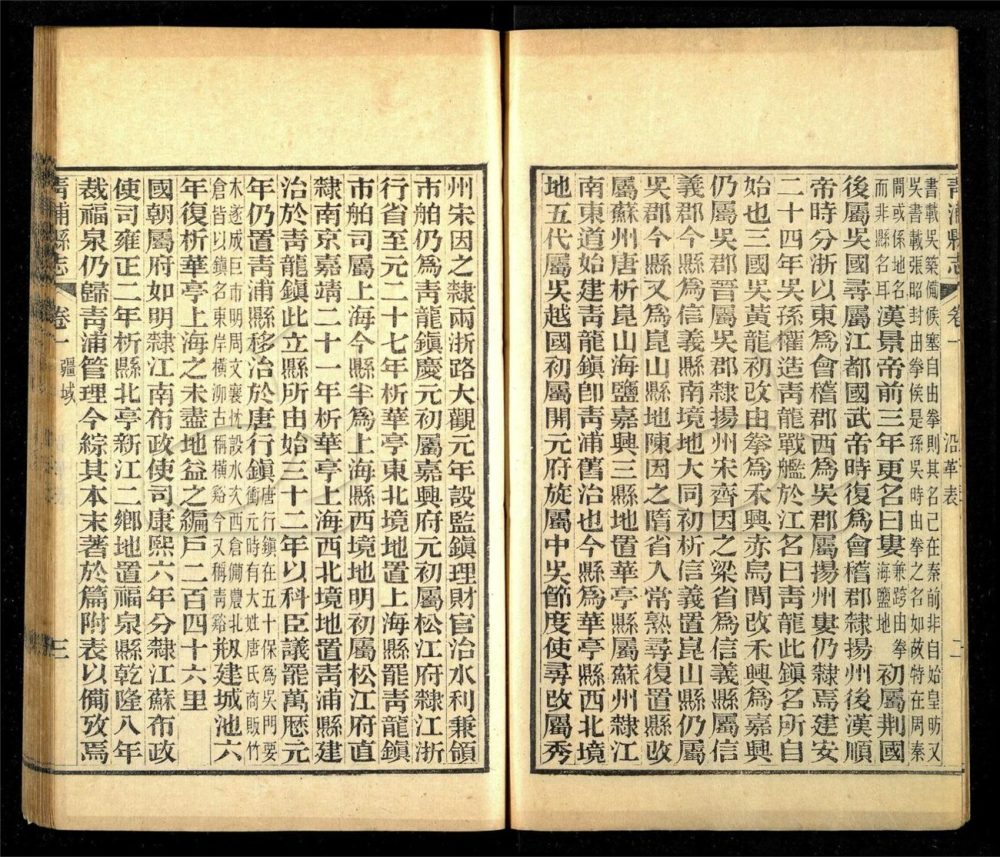 青浦縣志 卷一 沿革表 二
書載吳築備候塞自由拳則其名已在秦前非自始皇昉又
吳書載張昭封由拳侯是孫吳時由拳之名如故特在周秦
間或係地名而非縣名耳漢景帝前三年更名曰婁兼跨由拳海鹽地初屬荆國
後屬吳國尋屬江都國武帝時復爲會稽郡隸揚州後漢順
帝時分浙以東爲會稽郡西爲吳郡屬揚州婁仍隸焉建安
二十四年孫權造青龍戰艦於江名曰青龍此鎮名所自
始也三國吳黃龍初改由拳爲禾興赤烏間改禾興爲嘉興
仍屬吳郡晉屬吳郡隸揚州宋齊因之梁省爲信義縣屬信
義郡今縣爲信義縣南境地大同初析信義置崑山縣仍屬
吳郡今縣又爲崑山縣地陳因之隋省入常熟尋復置縣改
屬蘇州唐析崑山海鹽嘉興三縣地置華亭縣屬蘇州隸江
南東道始建青龍鎮卽青浦舊治也今縣爲華亭縣西北境
地五代屬吳越國初屬開元府旋屬中吳節度使尋改屬秀
州宋因之隸兩浙路大觀元年設監鎮理財官治水利兼領
市舶仍爲青龍鎮慶元初屬嘉興府元初屬松江府隸江浙
行省至元二十七年析華亭東北境地置上海縣罷青龍鎮
市舶司屬上海今縣半爲上海縣西境地明初屬松江府直
隸南京嘉靖二十一年析華亭上海西北境地置青浦縣建
治於青龍鎮此立縣所由始三十二年以科臣議罷萬歷元
年仍置青浦縣移治於唐行鎮唐行鎮在五十保爲吳門要衝元時有大姓唐氏商販竹
木遂成巨市明周文襄忱設水次西倉備農北倉皆以鎮名東岸橫泖古稱橫谿今又稱青谿剏建城池六
年復析華亭上海之未盡地益之編戶二百四十六里
國朝屬府如明隸江南布政使司康熙六年分隸江蘇布政
使司雍正二年析縣北亭新江二鄉地置福泉縣乾隆八年
裁福泉仍歸青浦管理今綜其本末著於篇附表以備攷焉
青浦縣志 卷一 疆域 三